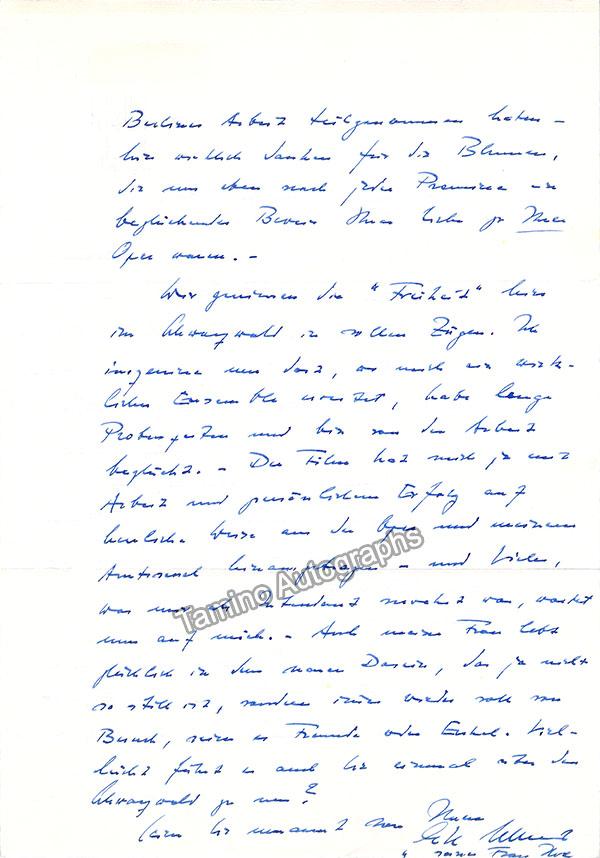 Berliner Arbeit teilgenommen haben –
hier wirklich danken für die Blumen,
die uns eben nach jeder Premiere ein
beglückender Beweis Ihrer Liebe zu Ihrer
Oper waren. –
Wir geniessen die "Freiheit" hier
im Schwarzwald in vollen Zügen. Ich
inszeniere nur dort, wo mich ein wirk-
liches Ensemble erwartet, habe lange
Probenzeiten und bin von der Arbeit
beglückt. – Der Film hat mich ja mit
Arbeit und persönlichem Erfolg auf
herrliche Weise aus der Oper und meinem
hinausgetragen – und Vieles,
was mir als Intendant verwehrt war, wartet
nun auf mich. – Auch meine Frau lebt
glücklich in dem neuen Dasein, das ja nicht
so still ist, sondern immer wieder voll von
Besuch, seien es Freunde oder Enkel. Viel-
leicht führt es auch Sie einmal über den
Schwarzwald zu uns?
Seien Sie umarmt von Ihrem
Frau
Tamino Autographs